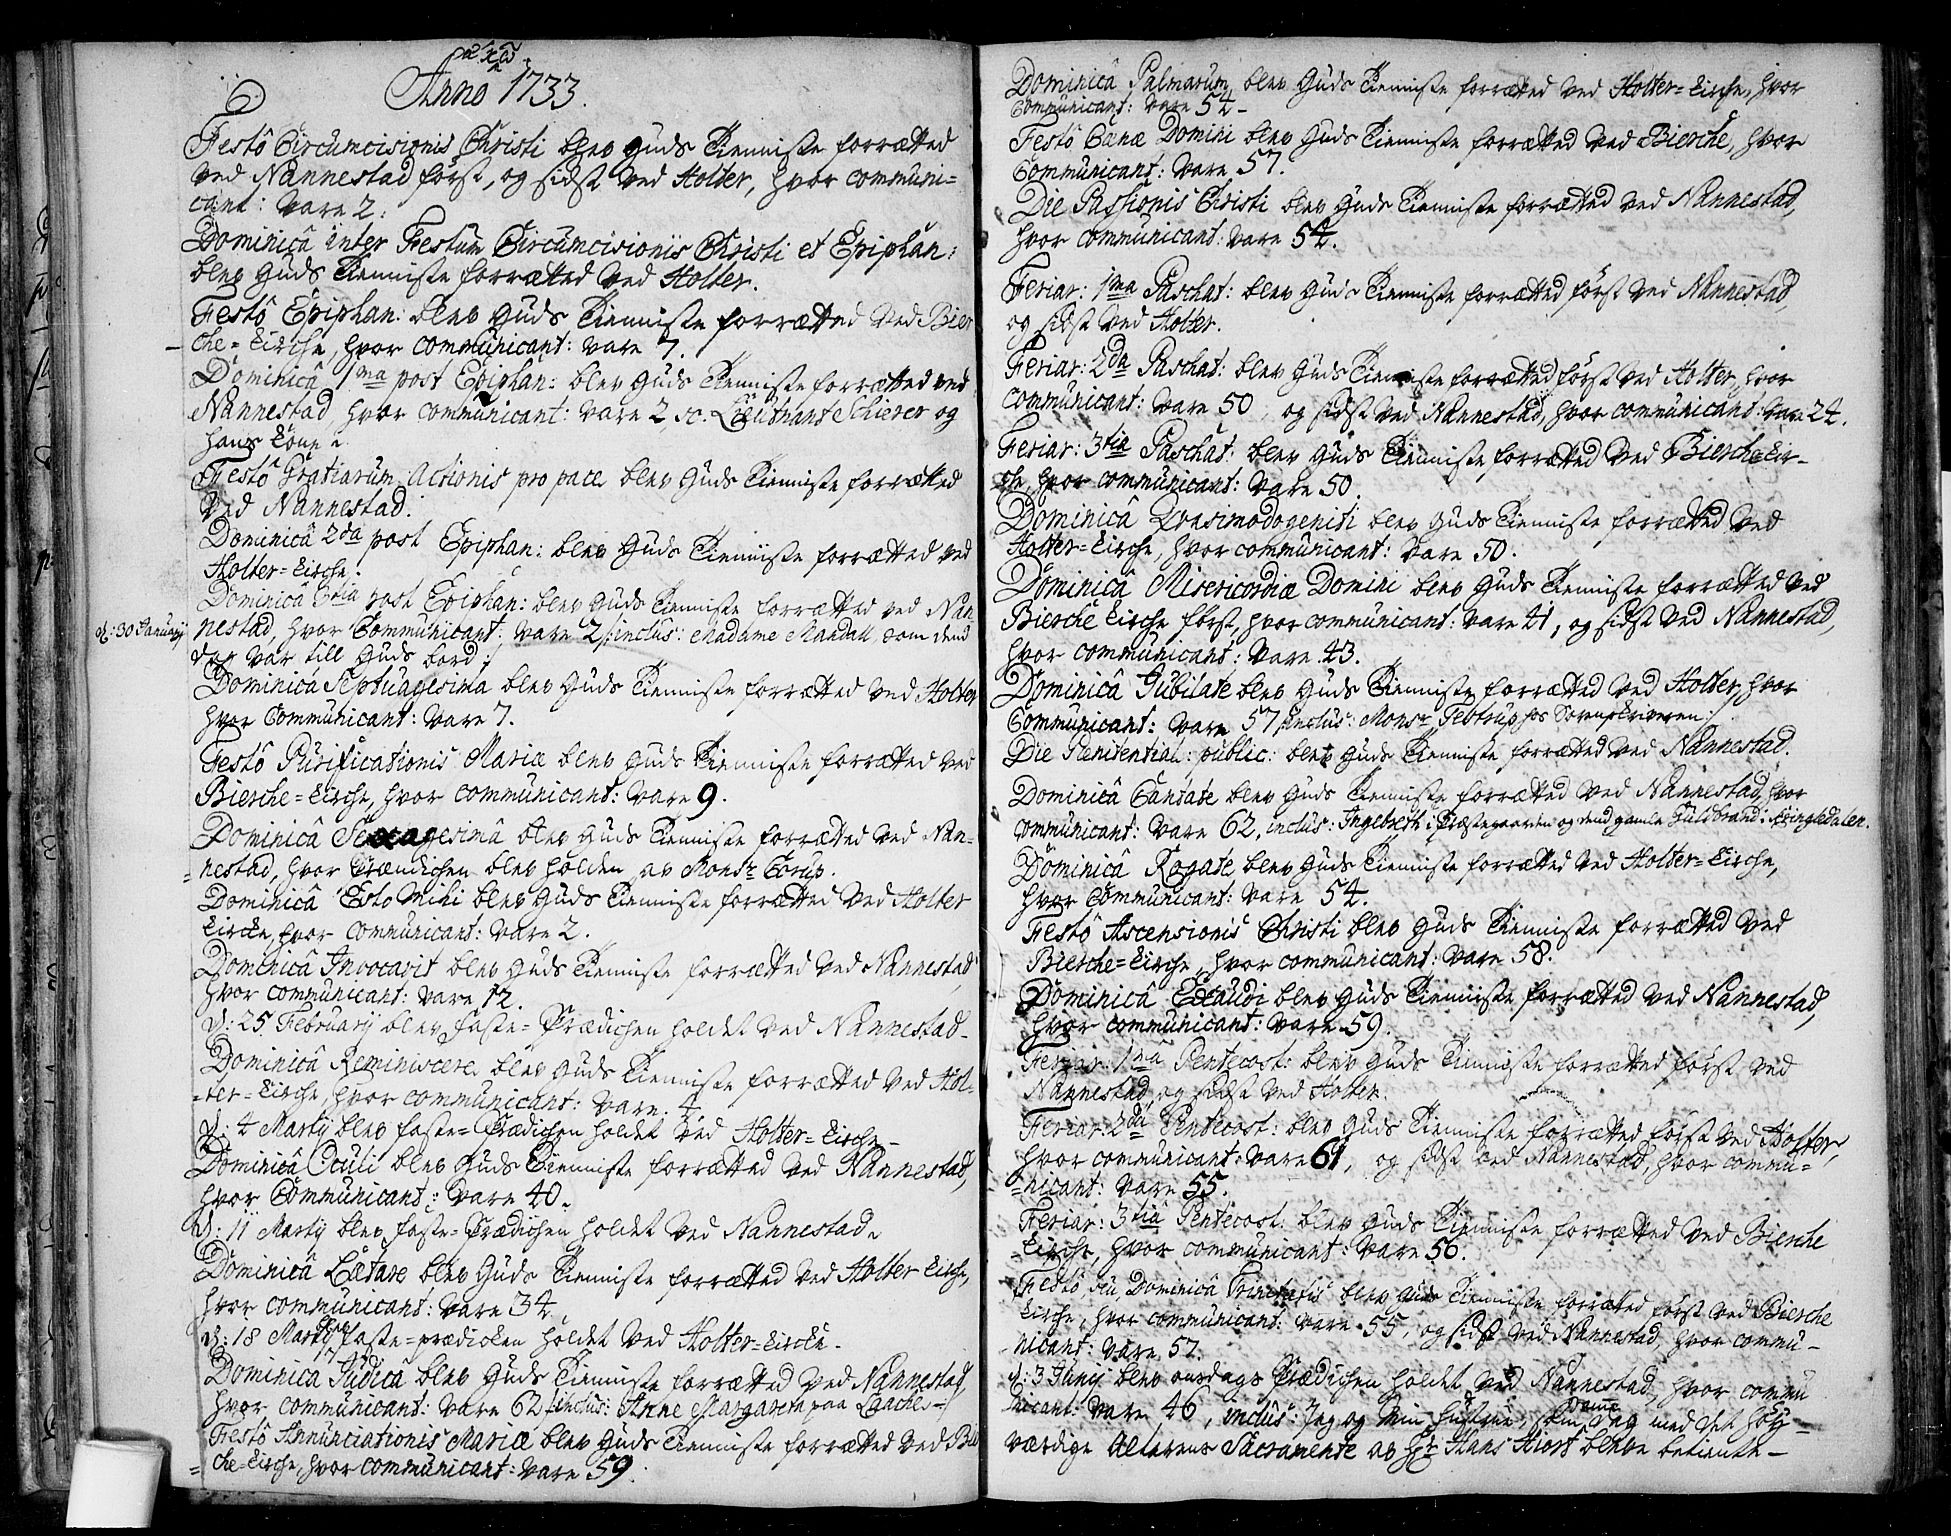 Anno 1733.
Festô Circumcisionis Christi blev Guds Tienniste forrætted
ved Nannestad först, og sidst ved Holter, hvor communi=
cant: vare 2.
Dominicâ inter Festum Circumcisioniis Christi et Epiphan:
blev Guds Tienniste forrætted ved Holter.
Festô Epiphan: blev Guds Tienniste forrætted ved Bier
che=Kirche, hvor communicant: vare 7.
Dominicâ 1ma post Epiphan: blev Guds Tienniste forrætted ved
Nannestad, hvor communicant: vare 2 sc. Lieutnant Schierer og
hans Kone
Festô Gratiarum Actionis pro pace blev Guds Tienniste forrætted
ved Nannestad.
Dominicâ 2da post Epiphan: blev Guds Tienniste forrætted ved
Holter=Kirche.
Dominicâ 3tia post Epiphan: blev Guds Tienniste forrætted ved Nan
d: 30 Januarij
nestad, hvor Communicant: vare 2 /:inclus: Madame Mandall som dend
dag var till Guds bord:/
Dominicâ Septuagesima blev Guds Tienniste forrætted ved Holter
hvor Communicant: vare 7.
Festô Purificationis Mariæ blev Guds Tienniste forrætted ved
Bierche=Kirche, hvor communicant: vare 9.
Dominicâ Sexagesimâ blev Guds Tienniste forrætted ved Nan=
=nestad, hvor Prædichen blev holden av Monsr Torup.
Dominicâ Esto Mihi blev Guds Tienniste forrætted ved Holter
Kircke, hvor communicant: vare 2.
Dominicâ Invocavit blev Guds Tienniste forrætted ved Nannestad,
hvor communicant: vare 12.
d: 25 Februarij blev faste=Prædichen holdet ved Nannestad-
Dominicâ Reminiscere blev Guds Tienniste forrætted ved Hol=
=ter=Kirche, hvor communicant: vare 4.
d: 4 Martij blev faste=Prædichen holdet ved Holter=Kirche-
Dominicâ Oculi blev Guds Tienniste forrætted ved Nannestad,
hvor Communicant: vare 40.
d: 11 Martij blev faste=Prædichen holdet ved Nannestad.
Dominicâ Lætare blev Guds Tienniste forrætted ved Holter Kirche,
hvor communicant: vare 34.
d: 18 Martij blev faste=prædicken holdet ved Holter=Kircke.
Dominica Judica blev Guds Tienniste forrætted ved Nannestad,
hvor communicant: vare 62 /:inclus: Anne Margareta paa Laache:/
Festô Annunciationis Mariæ blev Guds Tienniste forrætted ved Bier
=che=Kirche, hvor communicant: vare 59.
Dominicâ Palmarum blev Guds Tienniste forrætted ved Holter=Kirche, hvor
Communicant: vare 54-
Festô Cænæ Domini blev Guds Tienniste forrætted ved Bierche, hvor
Communicant: vare 57.
Die Passionis Christi blev Guds Tienniste forrætted ved Nannestad,
hvor communicant: vare 54.
Feriar: 1ma Paschat: blev Guds Tienniste forrætted först ved Nannestad,
og sidst ved Holter.
Feriar: 2da Paschat: blev Guds Tienniste forrætted först ved Holter, hvor
communicant: vare 50, og sidst ved Nannestad, hvor communicant: vare 24.
Feriar: 3tia Paschat: blev Guds Tienniste forrætted ved Bierche Kir-
che, hvor communicant: vare 50.
Dominicâ Qvasimodogeniti blev Guds Tienniste forrætted ved
Holter=Kirche, hvor communicant: vare 50.
Dominicâ Misericordiæ Domini blev Guds Tienniste forrætted ved
Bierche Kirche först, hvor communicant: vare 41, og sidst ved Nannestad,
hvor communicant: vare 43.
Dominicâ Jubilate blev Guds Tienniste forrætted ved Holter, hvor
Communicant: vare 57 /:inclus: Monsr Testrup hos Sorenskriveren:/
Die Pænitential: public: blev Guds Tienniste forrætted ved Nannestad.
Dominicâ Cantate blev Guds Tienniste forrætted ved Nannestad, hvor
communicant: vare 62, inclus: Ingebreth i Præstegaarden og dend gamle Guldbrand i Ringledalen.
Dominicâ Rogate blev Guds Tienniste forrætted ved Holter=Kirche,
hvor Communicant: vare 54.
Festô Ascensionis Christi blev Guds Tienniste forrætted ved
Bierche=Kirche, hvor communicant: vare 58.
Dominicâ Exaudi blev Guds Tienniste forrætted ved Nannestad,
hvor communicant: vare 59.
Feriar: 1mâ Pentecost: blev Guds Tienniste forrætted först ved
Nannestad, og sidst ved Holter.
Feriar: 2da Pentecost: blev Guds Tienniste forrætted först ved Holter,
hvor communicant: vare 61, og sidst ved Nannestad, hvor commu=
=nicant: vare 55.
Feriar: 3tiâ Pentecost: blev Guds Tienniste forrætted ved Bierche
Kirche, hvor communicant: vare 56.
Festô siu Dominicâ Trinitatis blev Guds Tienniste forrætted först ved Bierche
Kirche, hvor communicant: vare 55, og sidst ved Nannestad, hvor commu-
nicant: vare 57.
d: 3 Junij blev onsdags Prædichen holdet ved Nannestad, hvor commu
nicant: vare 46, inclus: Jeg og min hustrue, som samme dag med det høy-
værdige Alterens Sacramente av Hr Hans Hiort bleve betiente-